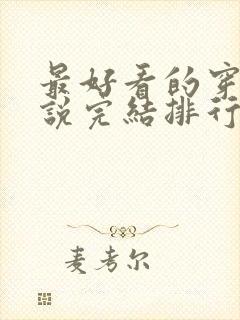 最好看的穿
說完結排行
麦考尔